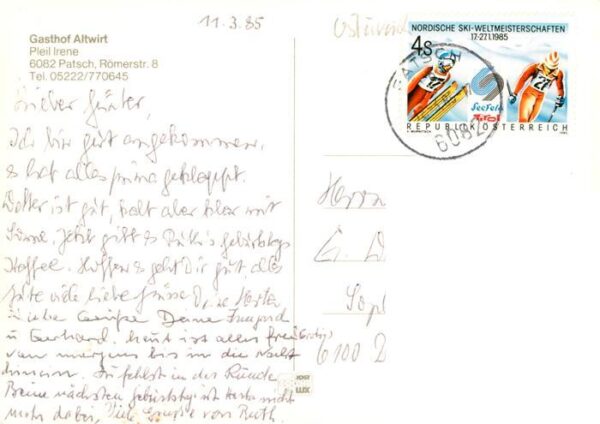 11.3.85
Gasthof Altwirt
Pleil Irene
6082 Patsch, Römerstr. 8
Tel. 05222/770645
Lieber Günter,
Ich bin gut angekommen,
es hat alles prima geklappt.
Wetter ist gut, kalt aber klar mit
Sonne. Jetzt gibt es Ruth's Geburtstags
Kaffee. Hoffen es geht Dir gut, alles
gute viele liebe Grüsse Deine Herta
Liebe Grüße Deine Irmgard
u Gerhard. heut ist alles frei (Gratis)
von morgens bis in die Nacht
hinein. Du fehlst in der Runde
Beim nächsten Geburtstag ist Herta nicht
mehr dabei, Viele Grüße von Ruth.
NORDISCHE SKI-WELTMEISTERSCHAFTEN
17-27.1.1985
4S
Seefeld
Tirol
REPUBLIK ÖSTERREICH
PATSCH
6082
Herrn
G. D
Sop
6100 D